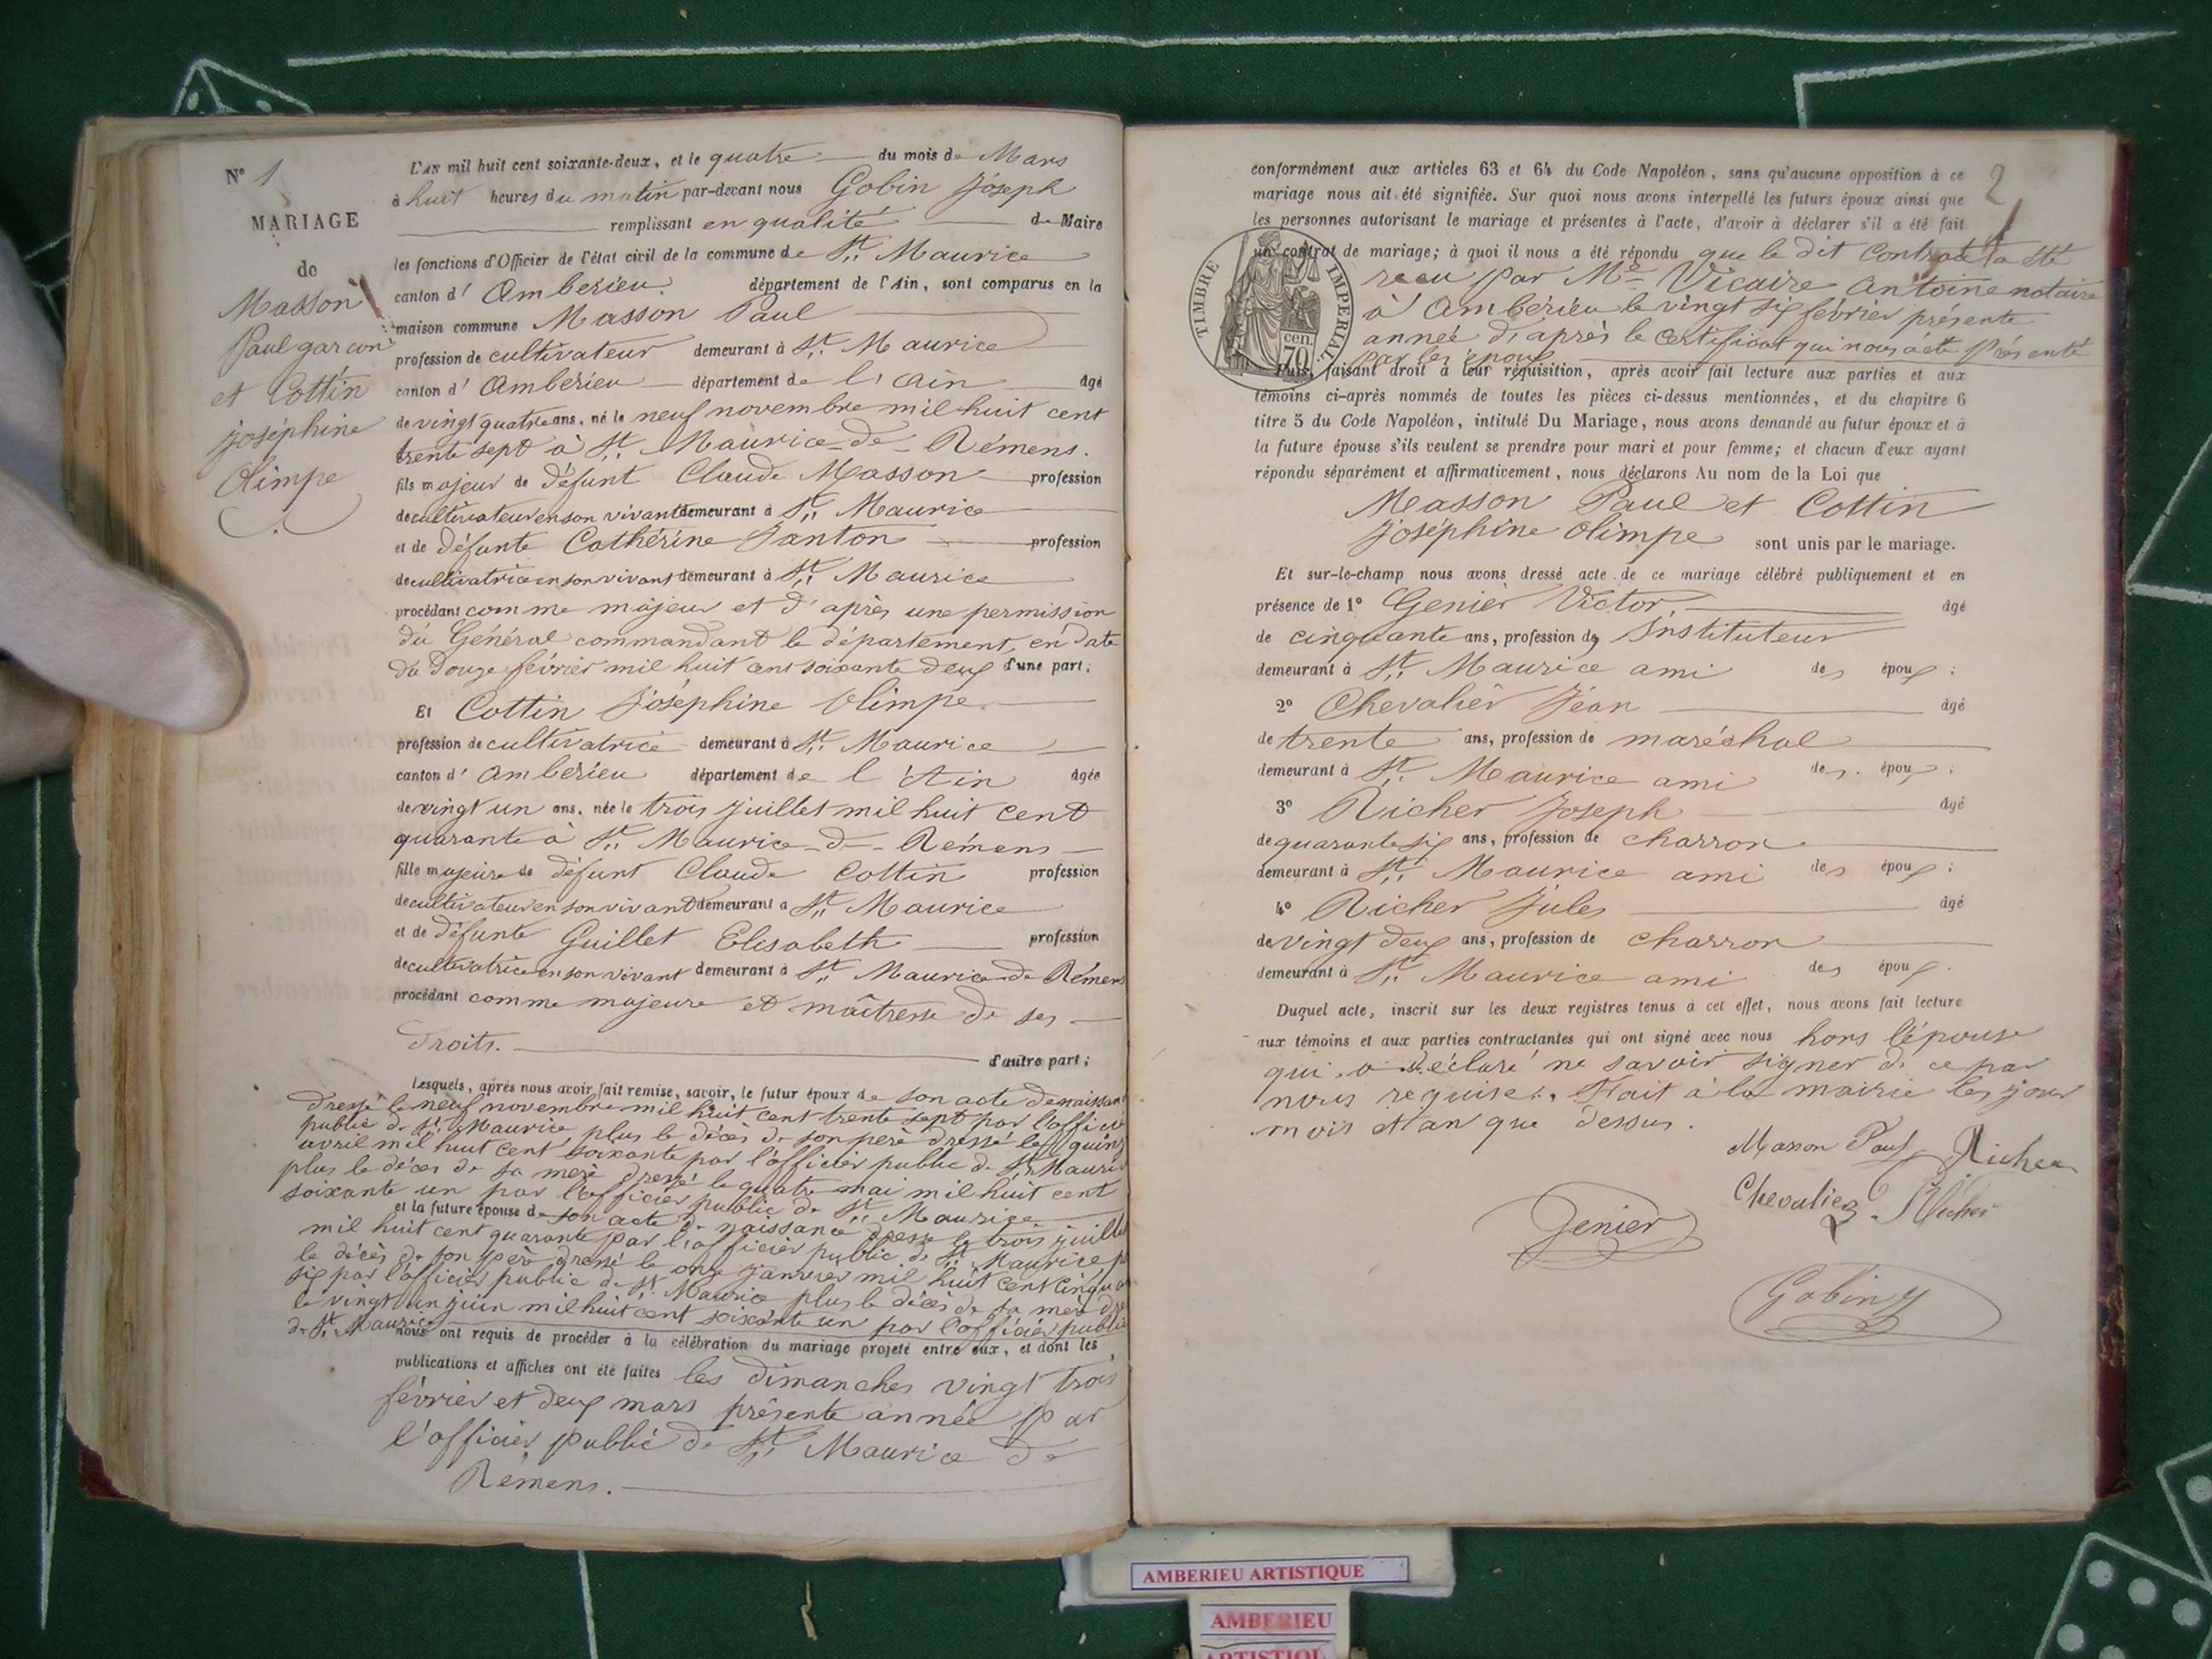 N° 1
MARIAGE
de
Masson
Paul garçon
et Cottin
joséphine
Olimpe
L'AN mil huit cent soixante-deux, et le quatre du mois de Mars
à huit heures du matin par-devant nous Gobin Jóseph
remplissant en qualité de Maire
les fonctions d'Officier de l'état civil de la commune de St Maurice
canton d' Amberieu département de l'Ain, sont comparus en la
maison commune Masson Paul
profession de cultivateur demeurant à St Maurice
canton d' Amberieu département de l'ain âgé
de vingt quatre ans, né le neuf novembre mil huit cent
trente sept à St Maurice de Rémens.
fils majeur de défunt Claude Masson profession
de cultivateur en son vivant demeurant à St Maurice
et de défunte Cathérine Janton profession
de cultivatrice en son vivant demeurant à St Maurice
procédant comme majeur et d'après une permission
du Général commandant le département, en date
du douze février mil huit cent soixante deux d'une part;
Et Cottin Joséphine Olimpe
profession de cultivatrice demeurant à St Maurice
canton d' Amberieu département de l'Ain âgée
de vingt un ans, née le trois juillet mil huit cent
quarante à St Maurice de Rémens
fille majeure de défunt Claude Cottin profession
de cultivateur en son vivant demeurant a St Maurice
et de défunte Guillet Elisabeth profession
de cultivatrice en son vivant demeurant à St Maurice de Rémens
procédant comme majeure et maîtresse de ses
droits. d'autre part;
Lesquels, après nous avoir fait remise, savoir, le futur époux de son acte de naissan
dressé le neuf novembre mil huit cent trente sept par l'officie
public de St Maurice plus le décès de son père dressé le quinz
avril mil huit cent soixante par l'officier public de St Mauri
plus le décès de sa mère dressé le quatre mai mil huit cent
soixante un par l'officier public de St Maurice
et la future épouse de son acte de naissance dressé le trois juille
mil huit cent quarante par l'officier public de St Maurice p
le décès de son père dressé le onze janvier mil huit cent cinqua
six par l'officier public de St Maurice plus le décès de sa mère dre
le vingt un juin mil huit cent soixante un par l'officier public
de St Maurice
nous ont requis de procéder à la célébration du mariage projeté entre eux, et dont les
publications et affiches ont été faites les dimanches vingt trois
février et deux mars présente année par
l'officier public de St Maurice de
Rémens.
2
conformément aux articles 63 et 64 du Code Napoléon, sans qu'aucune opposition à ce
mariage nous ait été signifiée. Sur quoi nous avons interpellé les futurs époux ainsi que
les personnes autorisant le mariage et présentes à l'acte, d'avoir à déclarer s'il a été fait
un contrat de mariage; à quoi il nous a été répondu que le dit contrat a été
reçu par Me Vicaire Antoine notaire
à Ambérieu le vingt six février présente
année d'après le certificat qui nous a été présenté
par les époux
TIMBRE IMPERIAL
70 cen.
Puis, faisant droit à leur réquisition, après avoir fait lecture aux parties et aux
témoins ci-après nommés de toutes les pièces ci-dessus mentionnées, et du chapitre 6
titre 5 du Code Napoléon, intitulé Du Mariage, nous avons demandé au futur époux et à
la future épouse s'ils veulent se prendre pour mari et pour femme; et chacun d'eux ayant
répondu séparément et affirmativement, nous déclarons Au nom de la Loi que
Masson Paul et Cottin
Joséphine Olimpe sont unis par le mariage.
Et sur-le-champ nous avons dressé acte de ce mariage célébré publiquement et en
présence de 1° Genier Victor, âgé
de cinquante ans, profession de Instituteur
demeurant à St Maurice ami des époux;
2° Chevalier Jéan âgé
de trente ans, profession de maréchal
demeurant à St Maurice ami des époux;
3° Richer Joseph âgé
de quarante six ans, profession de charron
demeurant à St Maurice ami des époux;
4° Richer Jules âgé
de vingt deux ans, profession de charron
demeurant à St Maurice ami des époux.
Duquel acte, inscrit sur les deux registres tenus à cet effet, nous avons fait lecture
aux témoins et aux parties contractantes qui ont signé avec nous hors l'épouse
qui a déclaré ne savoir signer de ce par
nous requise. Fait à la mairie les jour
mois et an que dessus.
Masson Paul Richer
Chevalier J Richer
Genier
Gobin J
AMBERIEU ARTISTIQUE
AMBERIEU
ARTISTIQUE